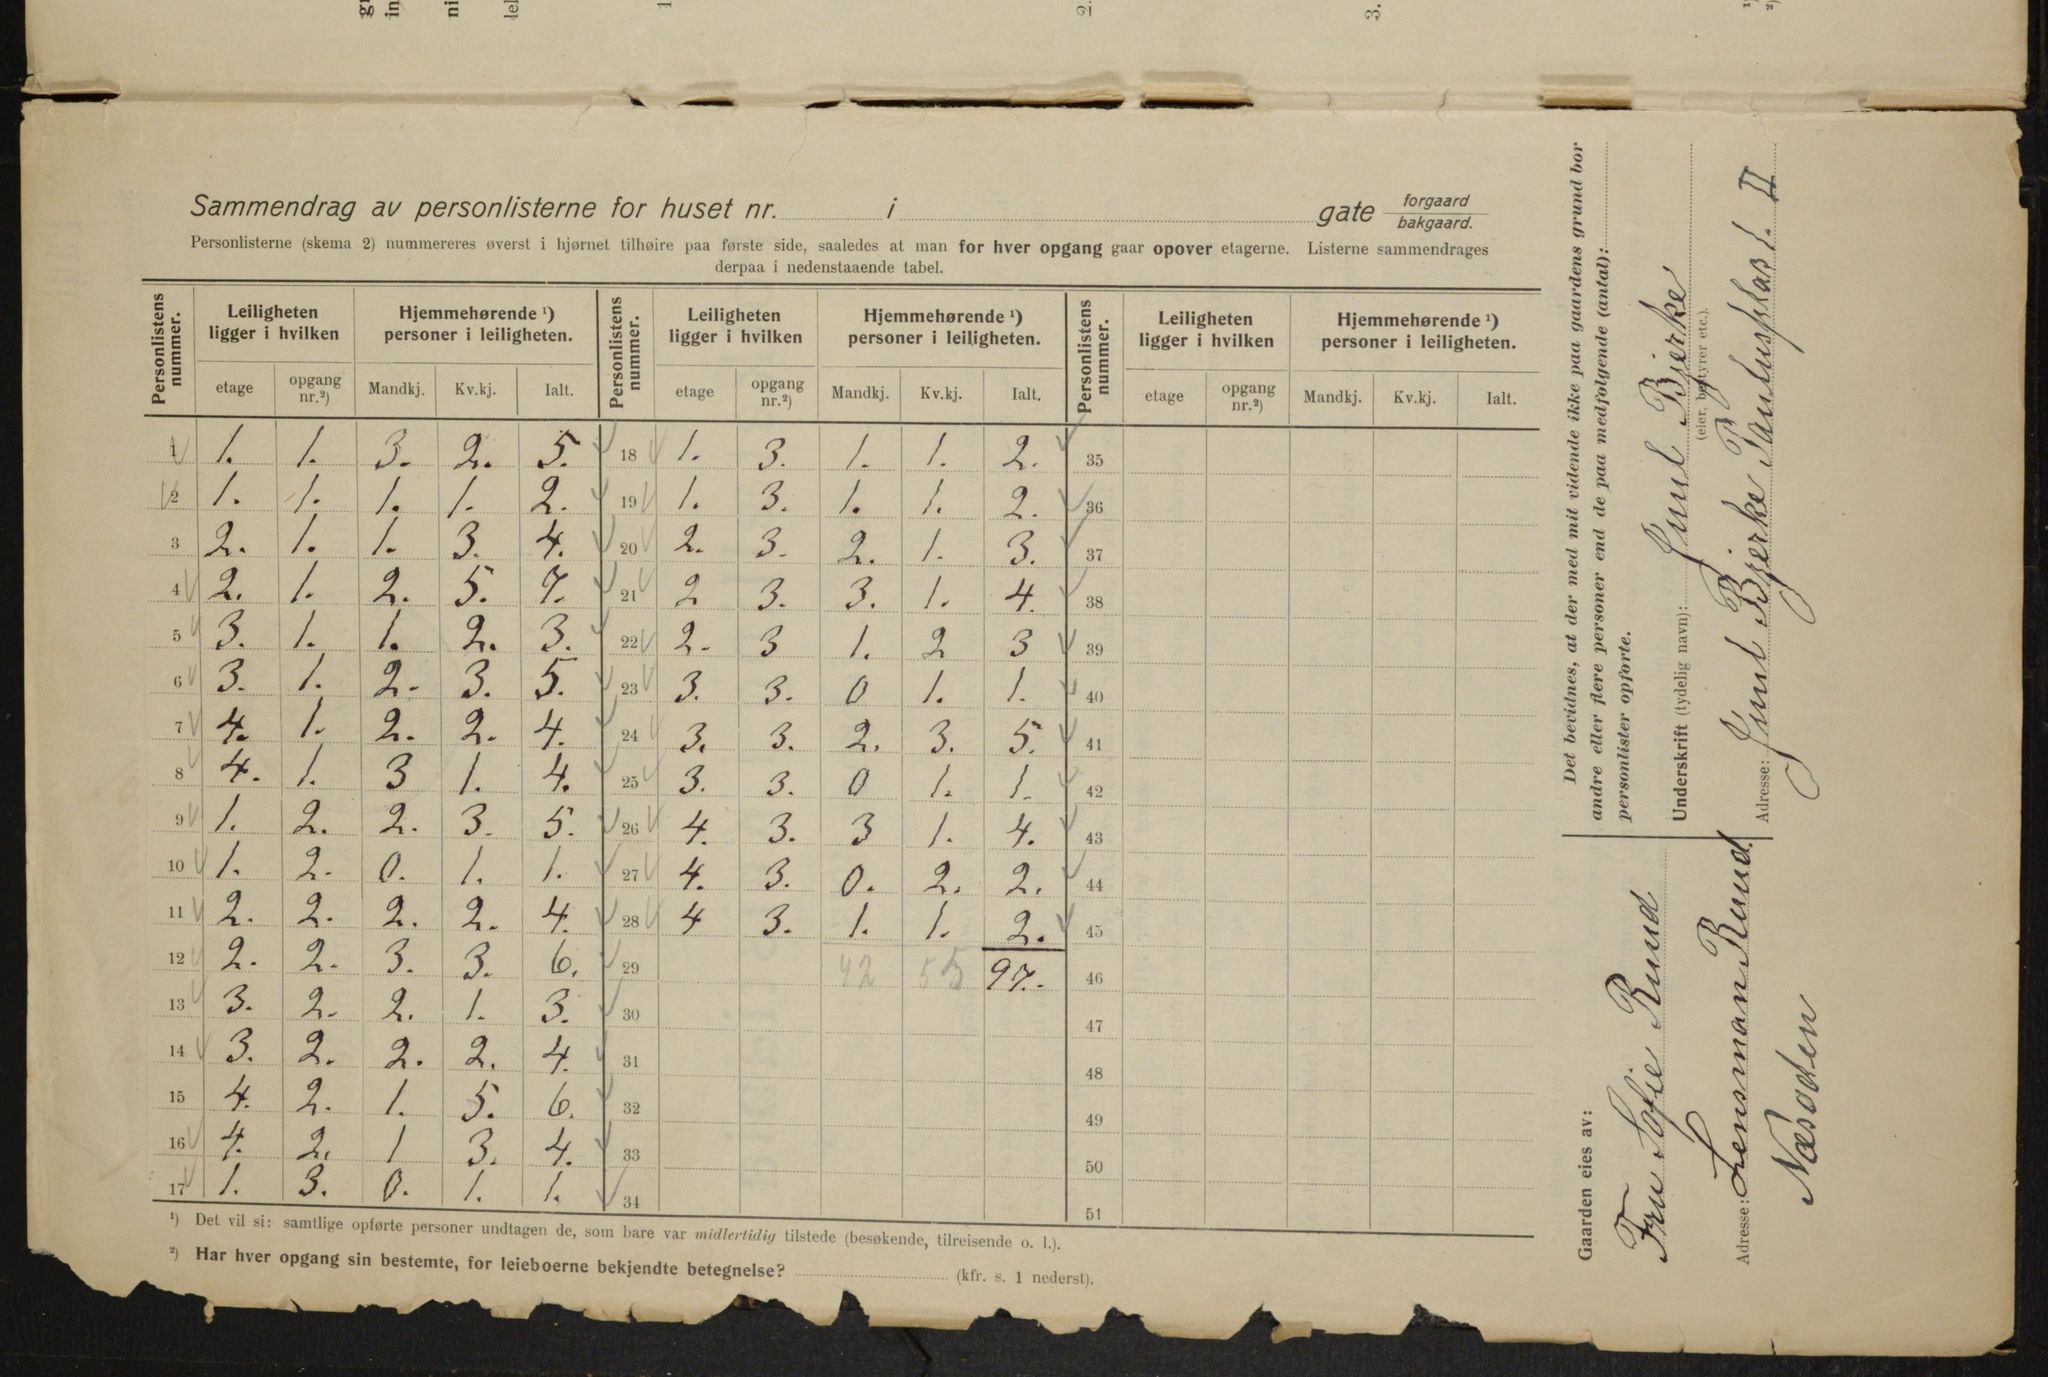 Sammendrag av personlisterne for huset nr. i gate forgaard bakgaard.
Personlisterne (skema 2) nummereres øverst i hjørnet tilhøire paa første side, saaledes at man for hver opgang gaar opover etagerne. Listerne sammendrages
derpaa i nedenstaaende tabel.
Personlistens nummer. Leiligheten ligger i hvilken Hjemmehørende ¹) personer i leiligheten.
etage opgang nr.²) Mandkj. Kv.kj. Ialt.
1 1. 1. 3. 2. 5.
2 1. 1. 1. 1. 2.
3 2. 1. 1. 3. 4.
4 2. 1. 2. 5. 7.
5 3. 1. 1. 2. 3.
6 3. 1. 2. 3. 5.
7 4. 1. 2. 2. 4.
8 4. 1. 3 1. 4.
9 1. 2. 2. 3. 5.
10 1. 2. 0. 1. 1.
11 2. 2. 2. 2. 4.
12 2. 2. 3. 3. 6.
13 3. 2. 2. 1. 3.
14 3. 2. 2. 2. 4.
15 4. 2. 1. 5. 6.
16 4. 2. 1 3. 4.
17 1. 3. 0. 1. 1.
Personlistens nummer. Leiligheten ligger i hvilken Hjemmehørende ¹) personer i leiligheten.
etage opgang nr.²) Mandkj. Kv.kj. Ialt.
18 1. 3. 1. 1. 2.
19 1. 3. 1. 1. 2.
20 2. 3. 2. 1. 3.
21 2 3. 3. 1. 4.
22 2. 3 1. 2 3
23 3. 3. 0 1. 1.
24 3. 3. 2. 3. 5.
25 3. 3. 0 1. 1.
26 4. 3. 3 1. 4.
27 4. 3. 0. 2. 2.
28 4 3. 1. 1. 2.
29 42 55 97.
30
31
32
33
34
Personlistens nummer. Leiligheten ligger i hvilken Hjemmehørende ¹) personer i leiligheten.
etage opgang nr.²) Mandkj. Kv.kj. Ialt.
35
36
37
38
39
40
41
42
43
44
45
46
47
48
49
50
51
¹) Det vil si: samtlige opførte personer undtagen de, som bare var midlertidig tilstede (besøkende, tilreisende o. l.).
²) Har hver opgang sin bestemte, for leieboerne bekjendte betegnelse? (kfr. s. 1 nederst).
Det bevidnes, at der med mit vidende ikke paa gaardens grund bor
andre eller flere personer end de paa medfølgende (antal):
personlister opførte.
Underskrift (tydelig navn): Juul Bjerke
(eier, bestyrer etc.).
Adresse: Juul Bjerke II
Gaarden eies av:
Fru Sofie Ruud
Adresse: Lensman Ruud
Næsodden